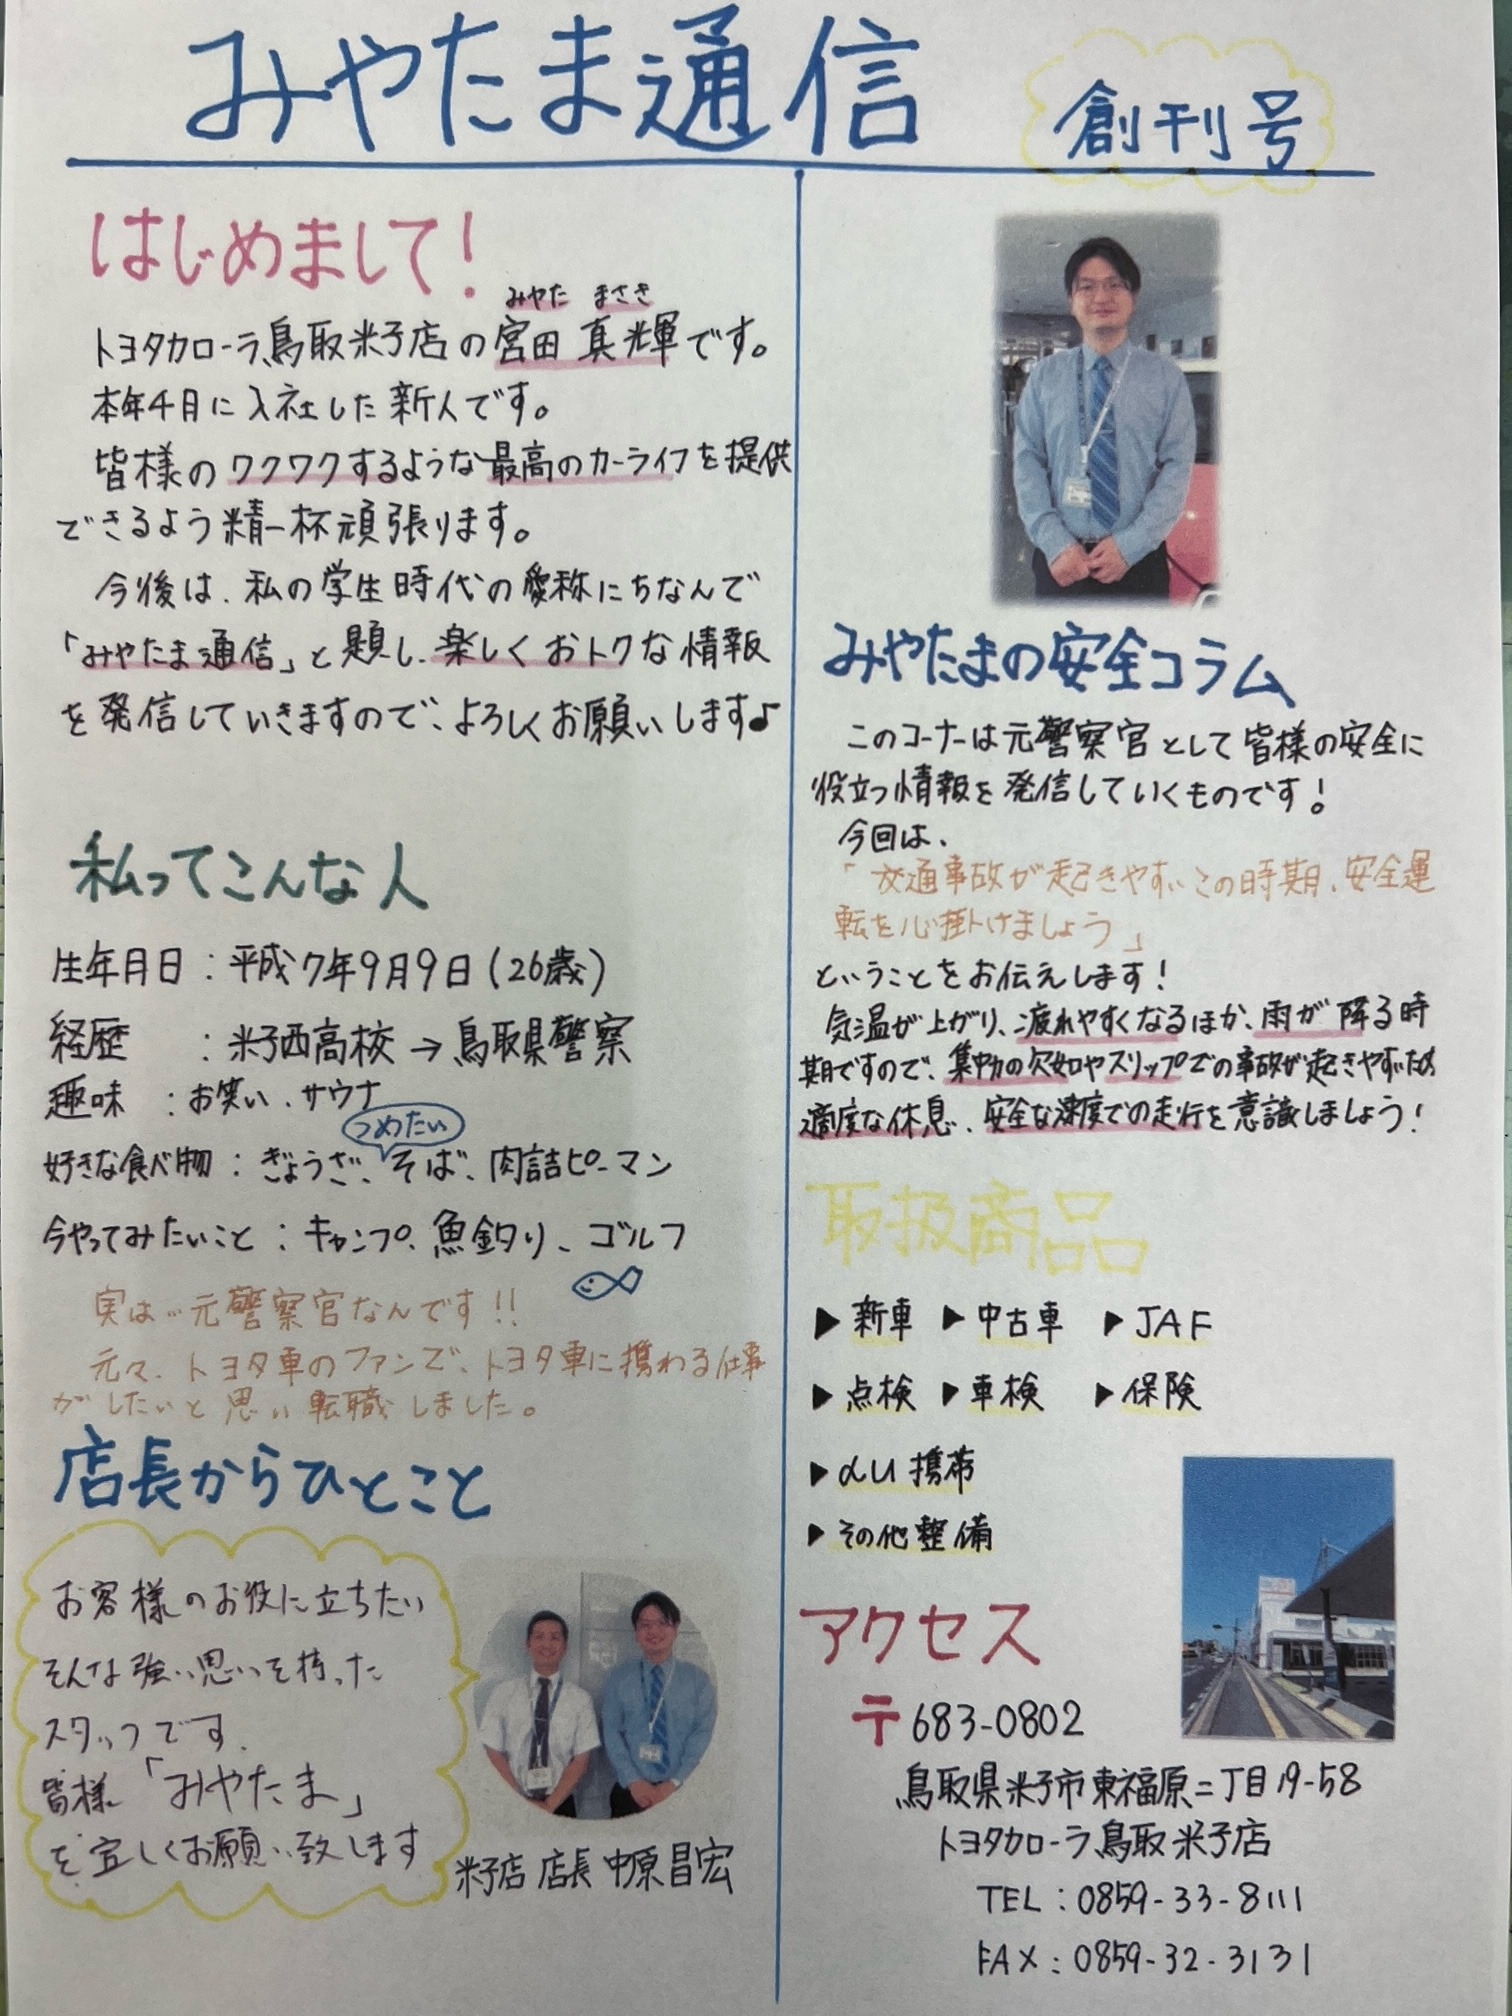 みやたま通信
創刊号
はじめまして!
みやた まさき
トヨタカローラ鳥取米子店の宮田 真輝です。
本年4月に入社した新人です。
皆様のワクワクするような最高のカーライフを提供
できるよう精一杯頑張ります。
今後は、私の学生時代の愛称にちなんで
「みやたま通信」と題し、楽しくおトクな情報
を発信していきますので、よろしくお願いします♪
私ってこんな人
生年月日:平成7年9月9日(26歳)
経歴 :米子西高校→鳥取県警察
趣味 :お笑い、サウナ
つめたい
好きな食べ物:ぎょうざ、そば、肉詰ピーマン
今やってみたいこと:キャンプ、魚釣り、ゴルフ
実は…元警察官なんです!!
元々、トヨタ車のファンで、トヨタ車に携わる仕事
がしたいと思い転職しました。
店長からひとこと
お客様のお役に立ちたい
そんな強い思いを持った
スタッフです。
皆様「みやたま」
を宜しくお願い致します
米子店 店長 中原 昌宏
みやたまの安全コラム
このコーナーは元警察官として皆様の安全に
役立つ情報を発信していくものです!
今回は、
「交通事故が起きやすいこの時期、安全運
転を心掛けましょう」
ということをお伝えします!
気温が上がり、疲れやすくなるほか、雨が降る時
期ですので、集中力の欠如やスリップでの事故が起きやすいため
適度な休息、安全な速度での走行を意識しましょう!
取扱商品
▶新車 ▶中古車 ▶JAF
▶点検 ▶車検 ▶保険
▶au携帯
▶その他整備
アクセス
〒683-0802
鳥取県米子市東福原二丁目19-58
トヨタカローラ鳥取米子店
TEL:0859-33-8111
FAX:0859-32-3131